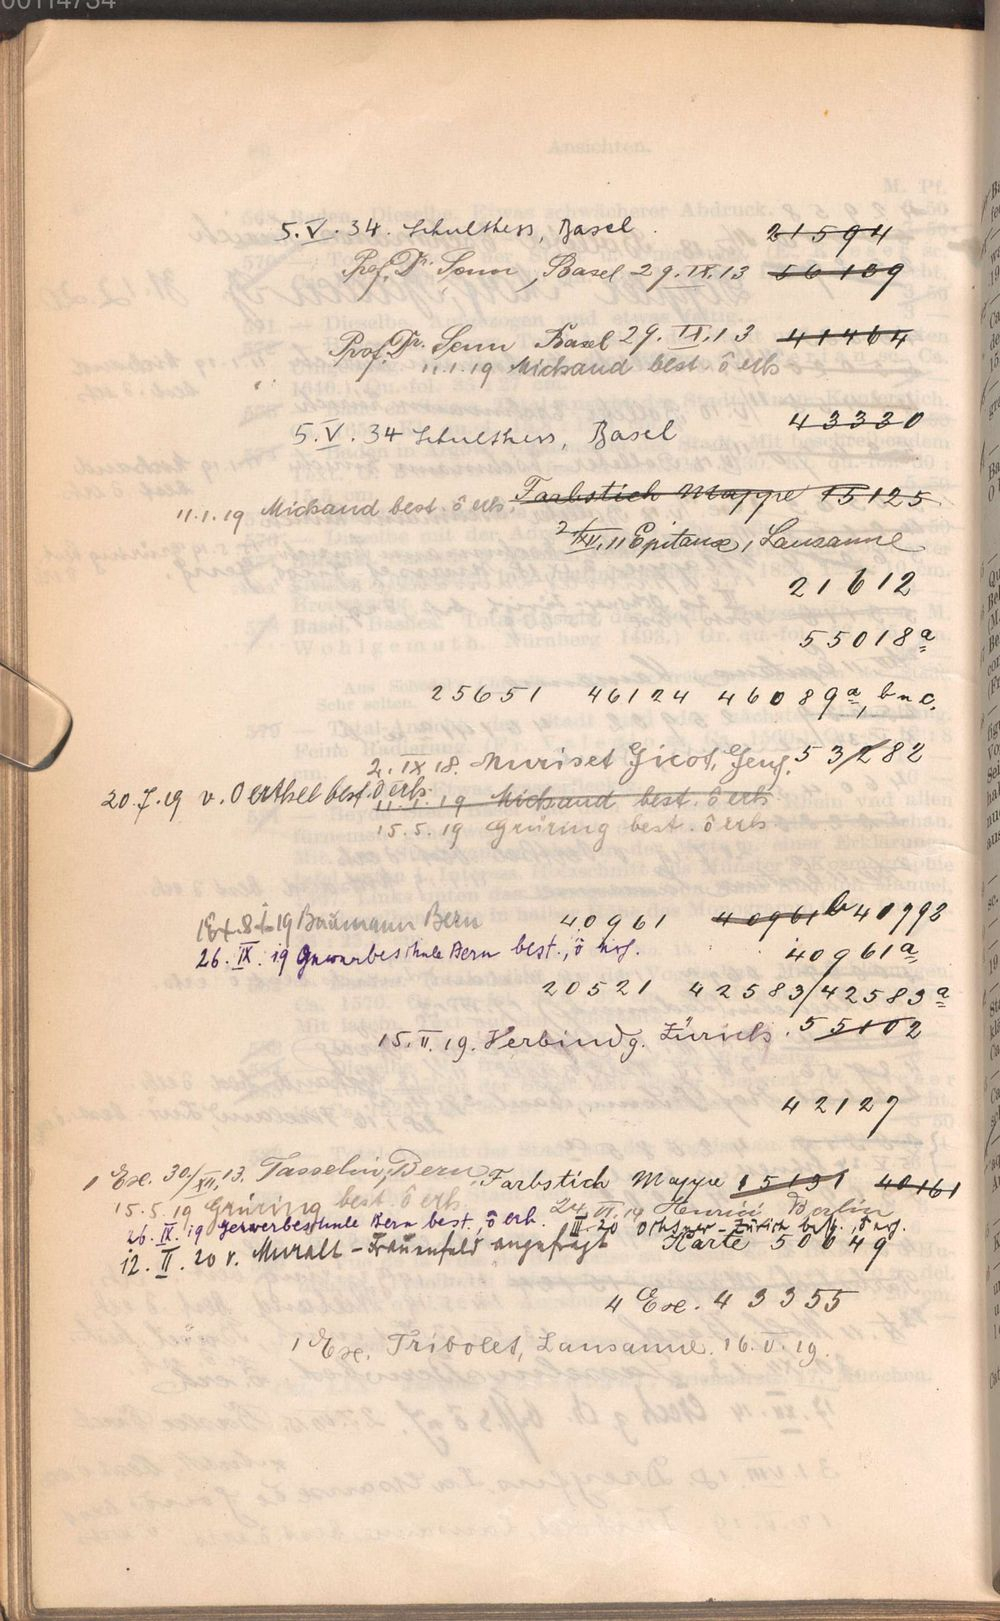 00114734
5.V.34. Schulthess, Basel. 21594
Prof. Dr. Senn, Basel 29.IX.13 56109
Prof. Dr. Senn Basel 29.IX.13 41464
11.1.19 Michaud best. ö erh
43330
5.V.34 Schulthess, Basel
Farbstich Mappe 15125
11.1.19 Michaud best. ö erh.
Epitaux, Lausanne
21612
55018a
25651 46124 46089a, b u c.
2.IX 18. Muriset Gicot, Genf. 53282
20.7.19 v. Oerthel best. ö erh.
11.1.19 Michaud best. ö erh
15.5.19 Grüring best. ö erh.
1 Ex. 8.1.19 Baumann Bern 40961 40961b 40993
26.IX.19 Gewerbeschule Bern best., ö
40961a
20521 42583/42583a
15.II.19. Verbindg. Zürich. 55102
42127
1 Exe. 30/XII.13. Tasselin, Bern, Farbstich Mappe 15131 40161
15.5.19 Grüring best. ö erh. 24.VI.14 Henrici Berlin
26.IX.19 Gewerbeschule Bern best., ö erh. III.20 Ochsner - Zürich
12.II.20 v. Muralt - Frauenfeld angefragt Karte 50649
4 Exe. 43355
1 Exe. Tribolet, Lausanne. 16.V.19.